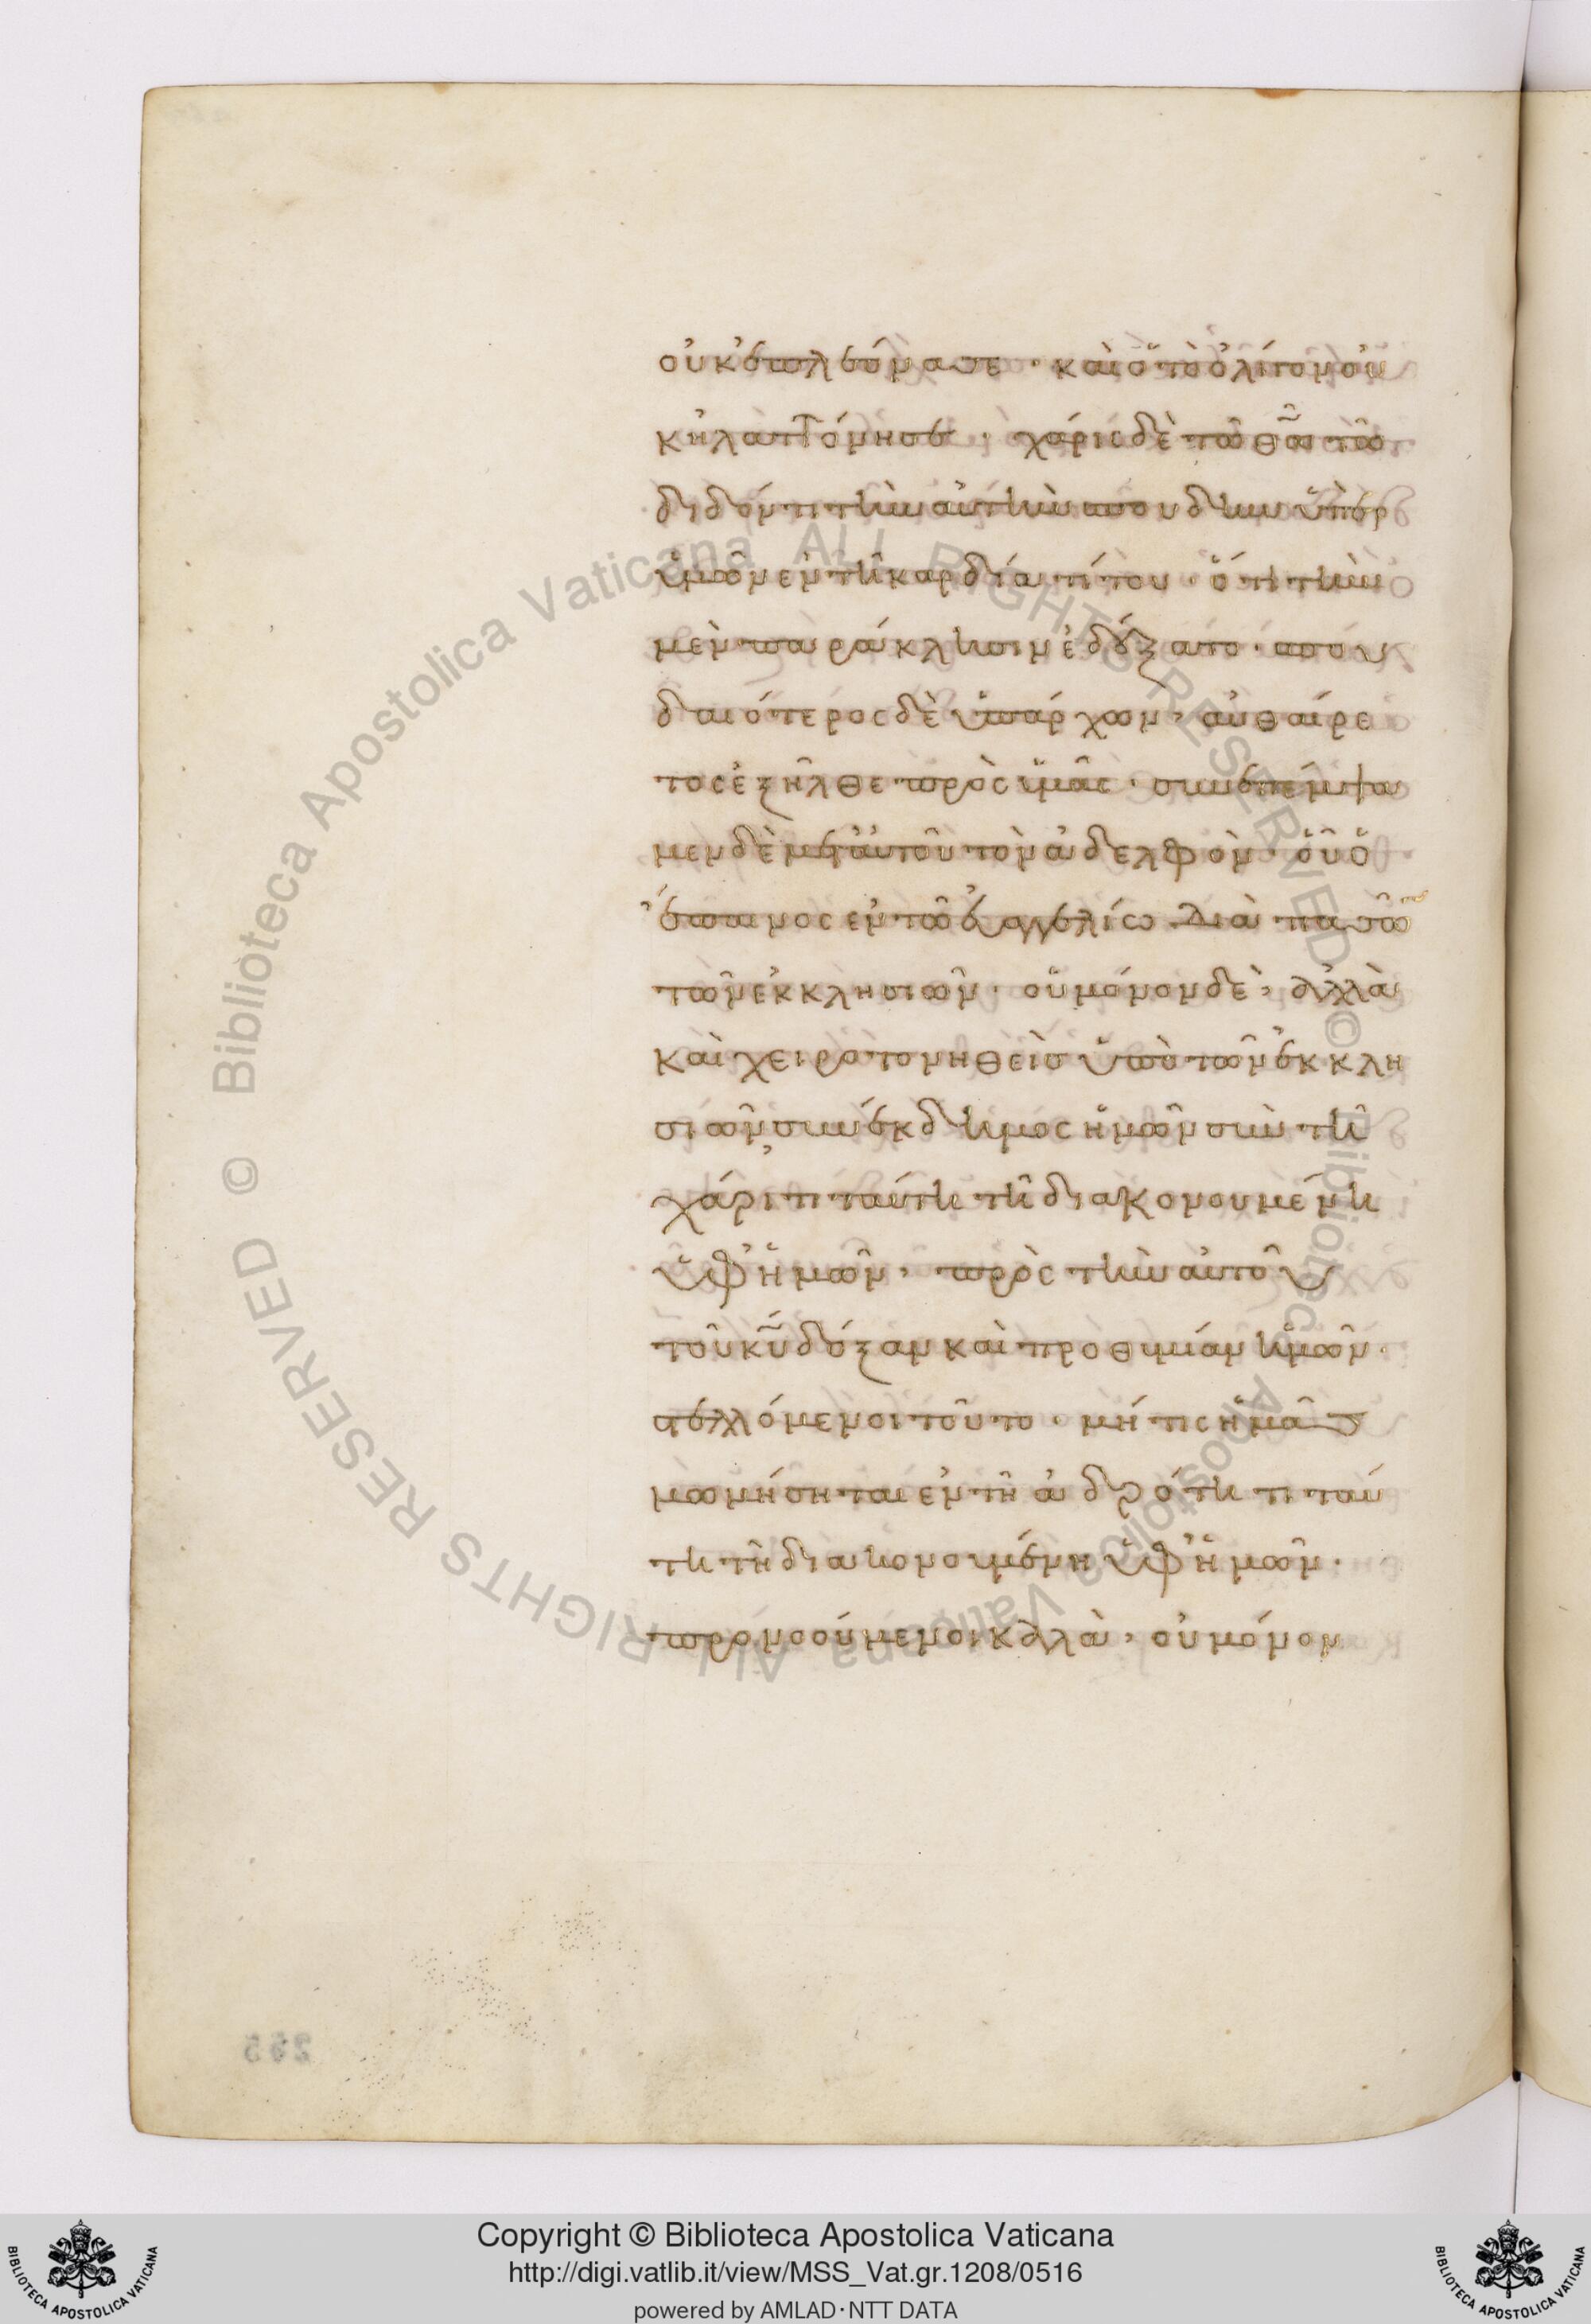 οὐκ ἐπλεόνασε · καὶ ὁ τὸ ὀλίγον οὐ
κ ἠλαττόνησε · χάρις δὲ τῶ θ͞ω τῶ
διδόντι τὴν αὐτὴν σπουδὴν ὑπὲρ
ὑμῶν ἐν τῆ καρδία τίτου · ὅτι τὴν
μὲν παράκλησιν ἐδέξατο · σπου
δαιότερος δὲ ὑπάρχων, αὐθαίρε
τος ἐξῆλθε πρὸς ὑμᾶς · συνεπέμψα
μεν δὲ μετ' αὐτοῦ τὸν ἀδελφὸν · οὗ ὁ
ἔπαινος ἐν τῶ εὐαγγελίω διὰ πασῶ
τῶν ἐκκλησιῶν · οὐ μόνον δὲ, ἀλλὰ
καὶ χειροτονηθεὶς ὑπὸ τῶν ἐκκλη
σιῶν συνέκδημος ἡμῶν σὺν τῆ
χάριτι ταύτη τῆ διακονουμένη
ὑφ' ἡμῶν, πρὸς τὴν αὐτοῦ
τοῦ κ͞υ δόξαν καὶ προθυμίαν ἡμῶν ·
στελλόμενοι τοῦτο · μή τις ἡμᾶς
μωμήσηται ἐν τῆ ἀδρότητι ταύ
τη τῆ διακονουμένη ὑφ' ἡμῶν ·
προνοούμενοι καλὰ, οὐ μόνον
255
© Biblioteca Apostolica Vaticana ALL RIGHTS RESERVED © Biblioteca Apostolica Vaticana ALL RIGHTS RESERVED
Copyright © Biblioteca Apostolica Vaticana
http://digi.vatlib.it/view/MSS_Vat.gr.1208/0516
powered by AMLAD·NTT DATA
BIBLIOTECA APOSTOLICA VATICANA
BIBLIOTECA APOSTOLICA VATICANA